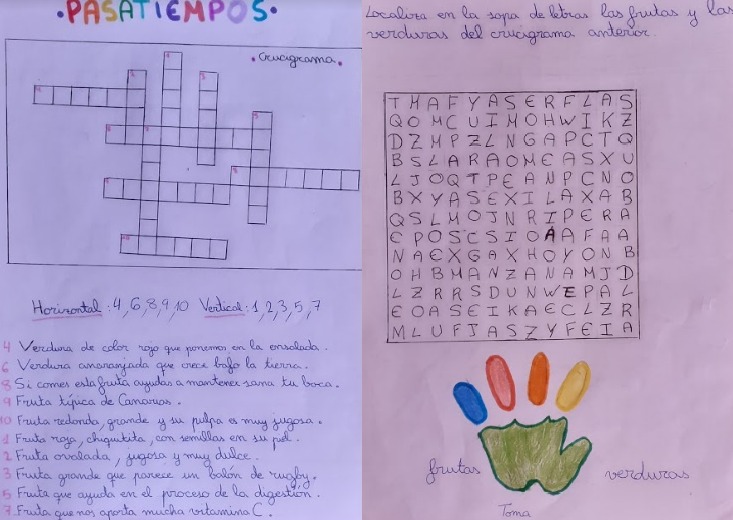 • PASATIEMPOS •
• Crucigrama •
Horizontal: 4, 6, 8, 9, 10 Vertical: 1, 2, 3, 5, 7
4 Verdura de color rojo que ponemos en la ensalada.
6 Verdura anaranjada que crece bajo la tierra.
8 Si comes esta fruta ayudas a mantener sana tu boca.
9 Fruta típica de Canarias.
10 Fruta redonda, grande y su pulpa es muy jugosa.
1 Fruta roja, chiquitita, con semillas en su piel.
2 Fruta ovalada, jugosa y muy dulce.
3 Fruta grande que parece un balón de rugby.
5 Fruta que ayuda en el proceso de la digestión.
7 Fruta que nos aporta mucha vitamina C.
Localiza en la sopa de letras las frutas y las
verduras del crucigrama anterior.
T H A F Y A S E R F L A S
Q O M C U I M O H W I K Z
D Z M P Z L N G A P C T Q
B S L A R A O M E A S X U
L J O Q T P E A N P C N O
B X Y A S E X I L A X A B
Q S L M O J N R I P E R A
C P O S C S I O A A F A A
N A E X G A X H O Y O N B
O H B M A N Z A N A M J D
L Z R R S D U N W E P A L
E O A S E I K A E C L Z R
M L U F J A S Z Y F E I A
frutas
verduras
Toma